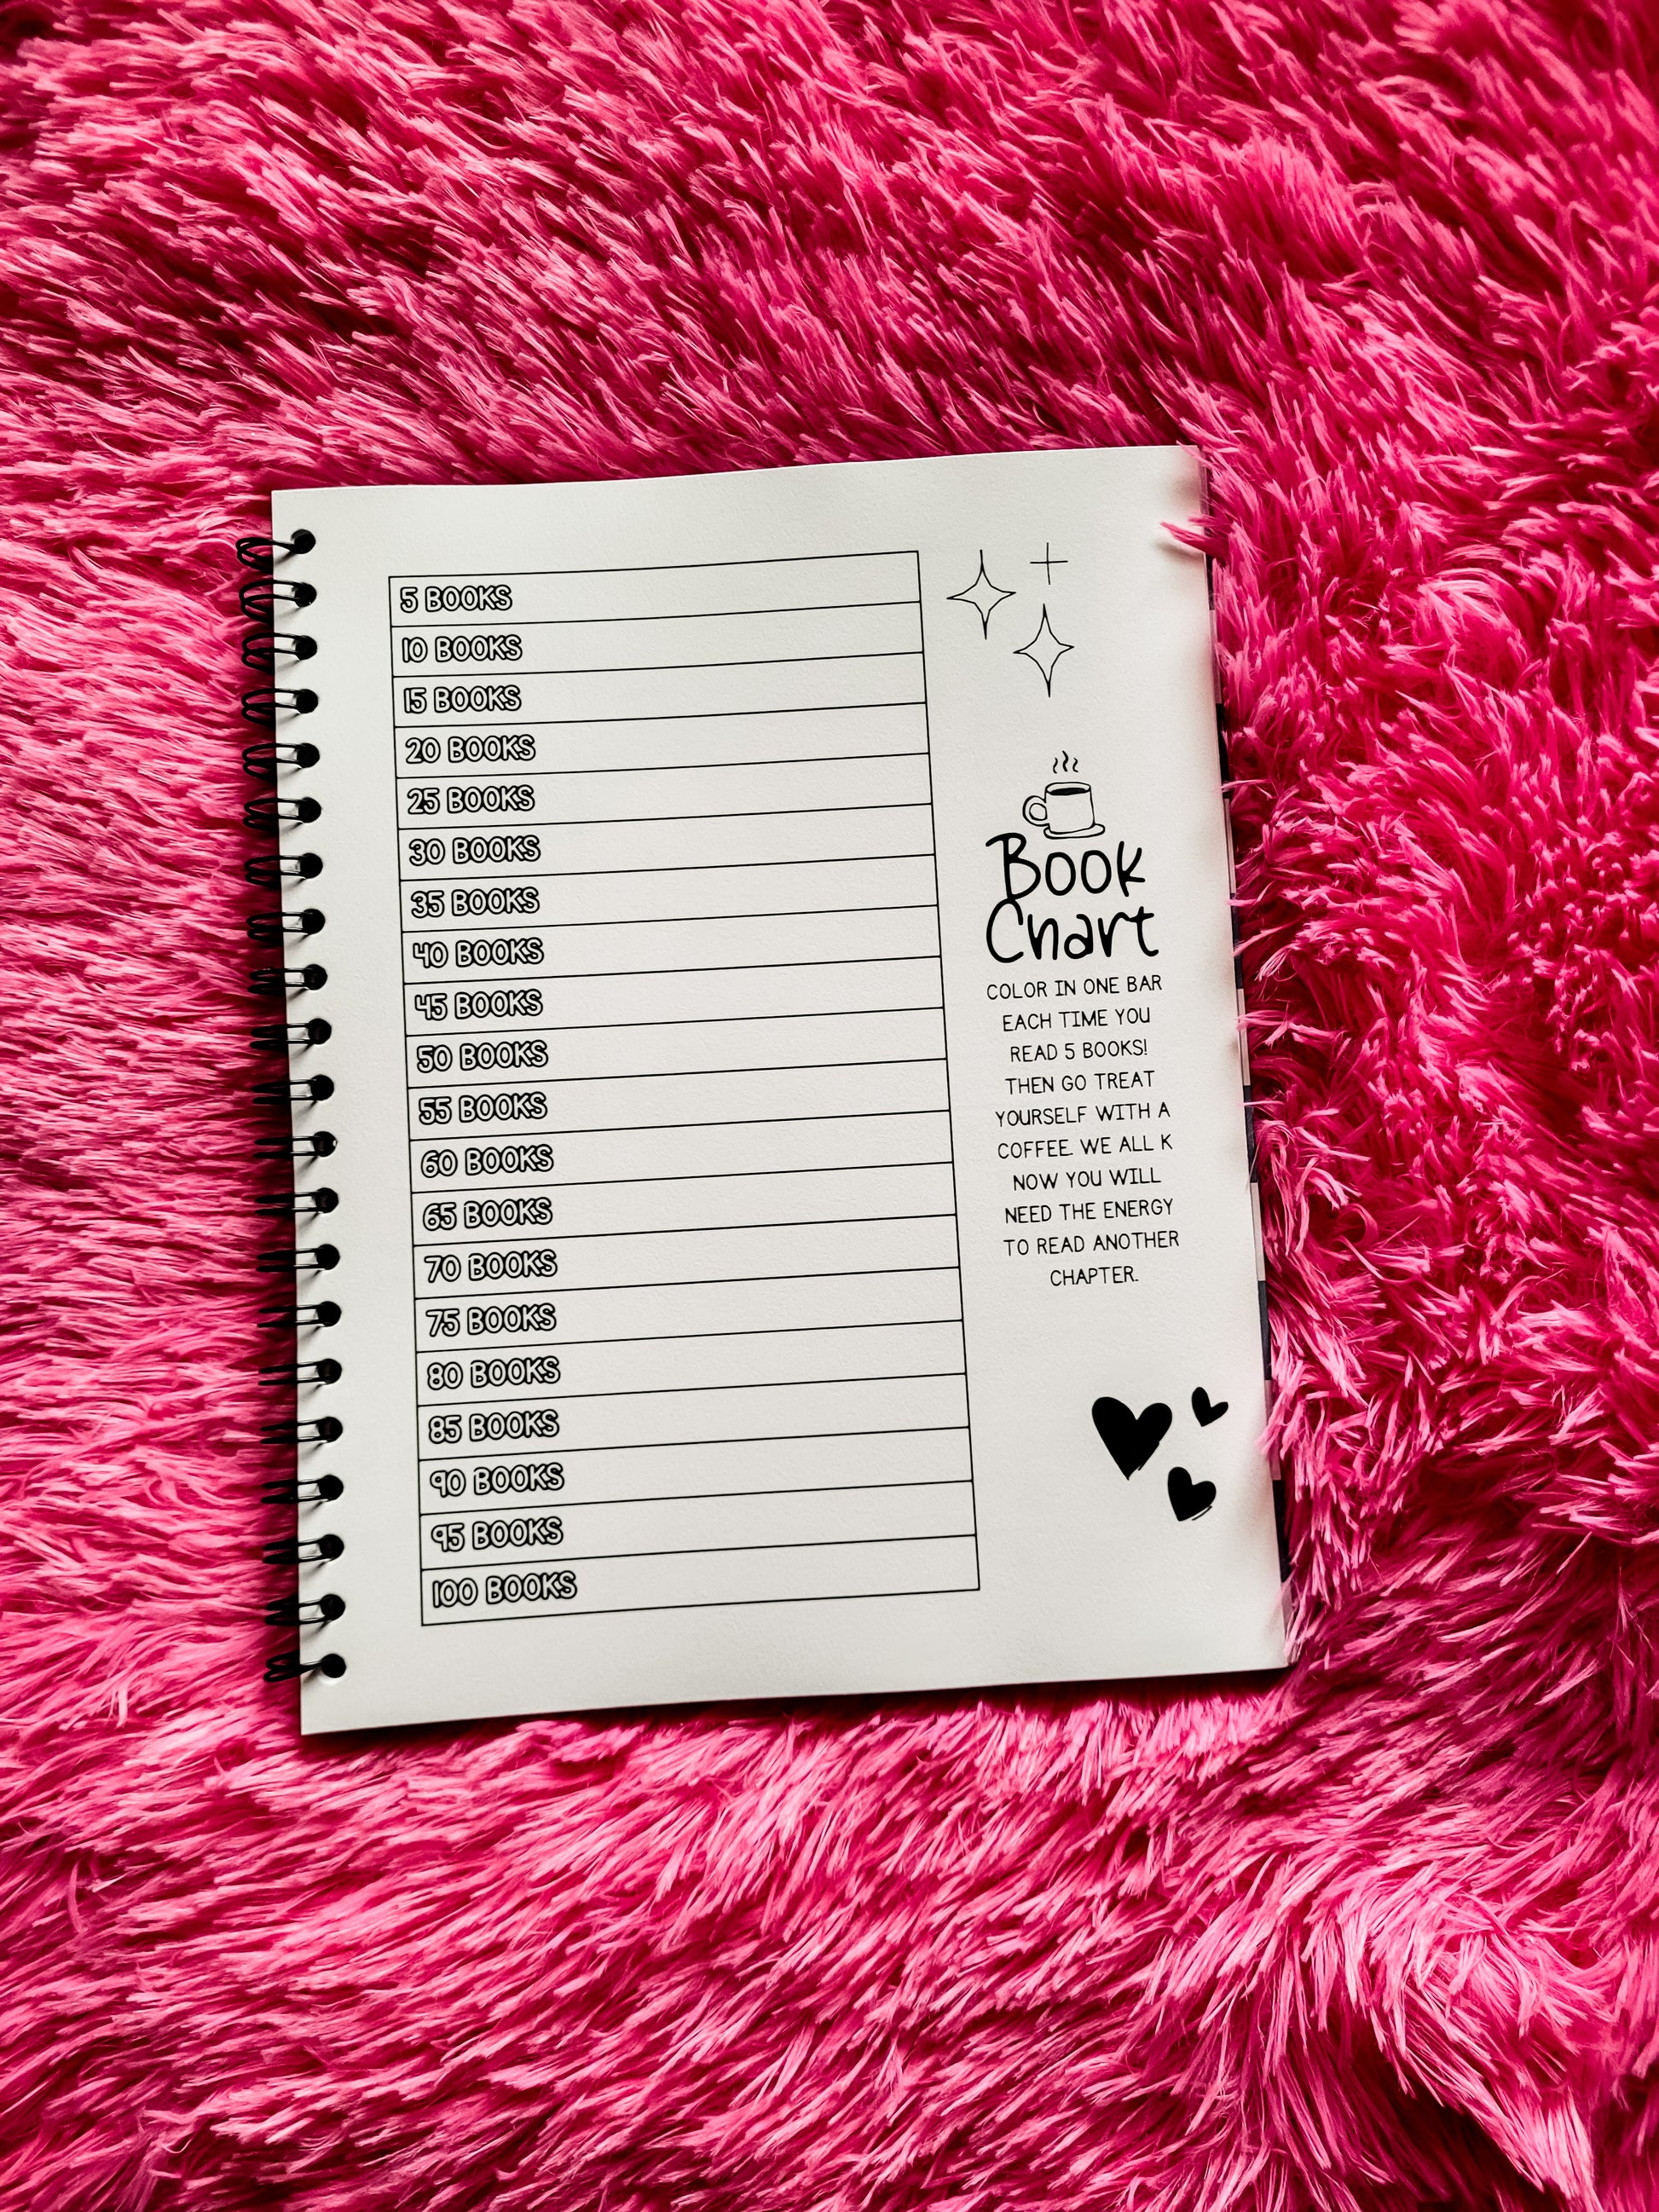 5 BOOKS
10 BOOKS
15 BOOKS
20 BOOKS
25 BOOKS
30 BOOKS
35 BOOKS
40 BOOKS
45 BOOKS
50 BOOKS
55 BOOKS
60 BOOKS
65 BOOKS
70 BOOKS
75 BOOKS
80 BOOKS
85 BOOKS
90 BOOKS
95 BOOKS
100 BOOKS
Book
Chart
COLOR IN ONE BAR
EACH TIME YOU
READ 5 BOOKS!
THEN GO TREAT
YOURSELF WITH A
COFFEE. WE ALL K
NOW YOU WILL
NEED THE ENERGY
TO READ ANOTHER
CHAPTER.